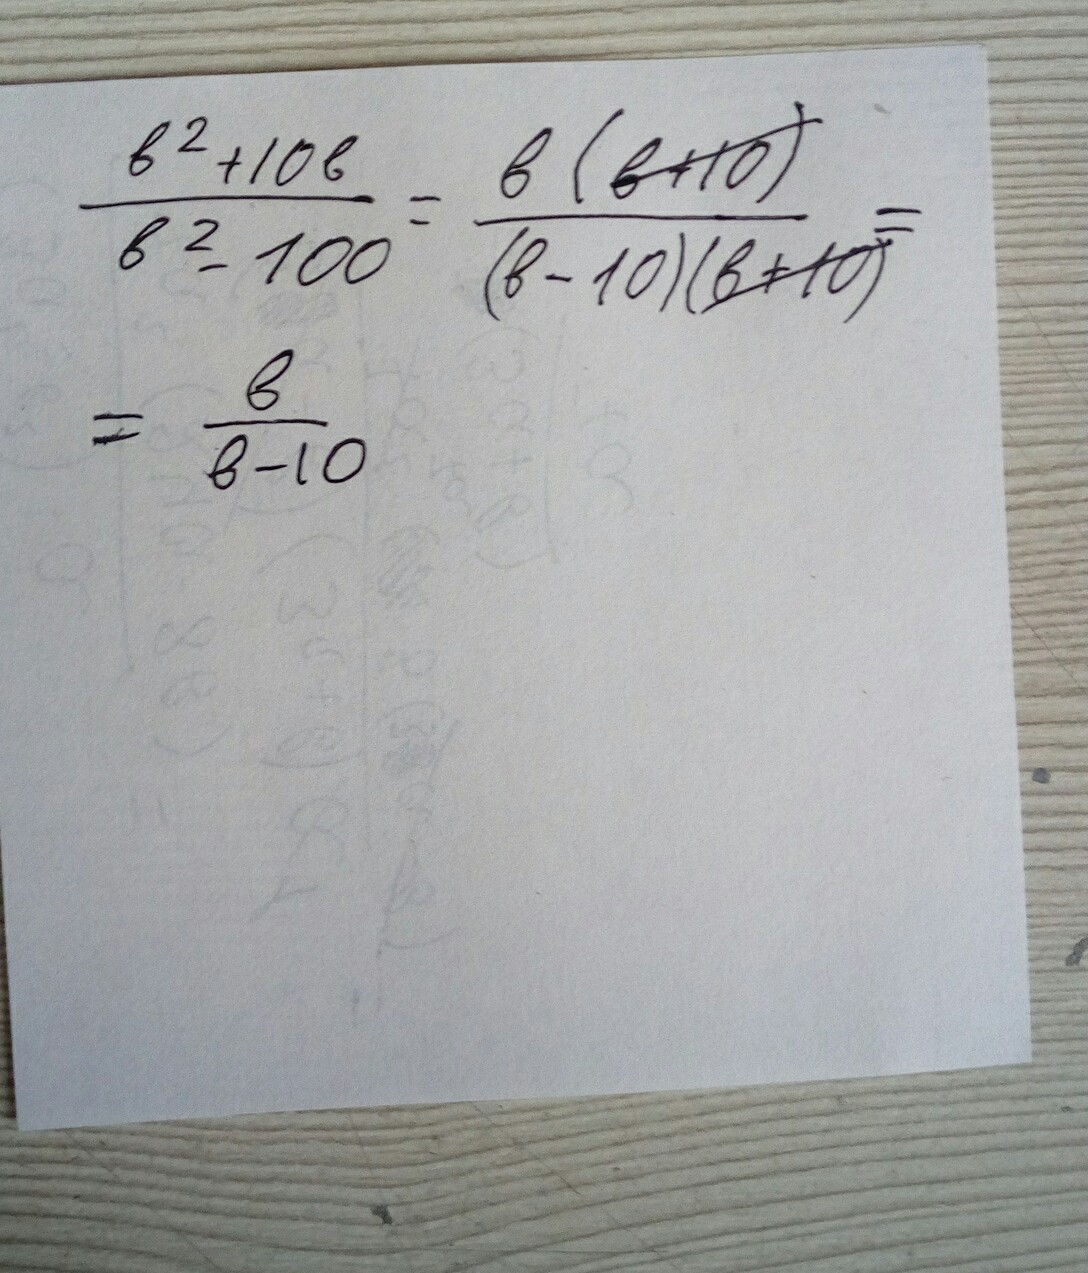 в² + 10в / в² - 100 = в (в + 10) / (в - 10)(в + 10) =
= в / в - 10